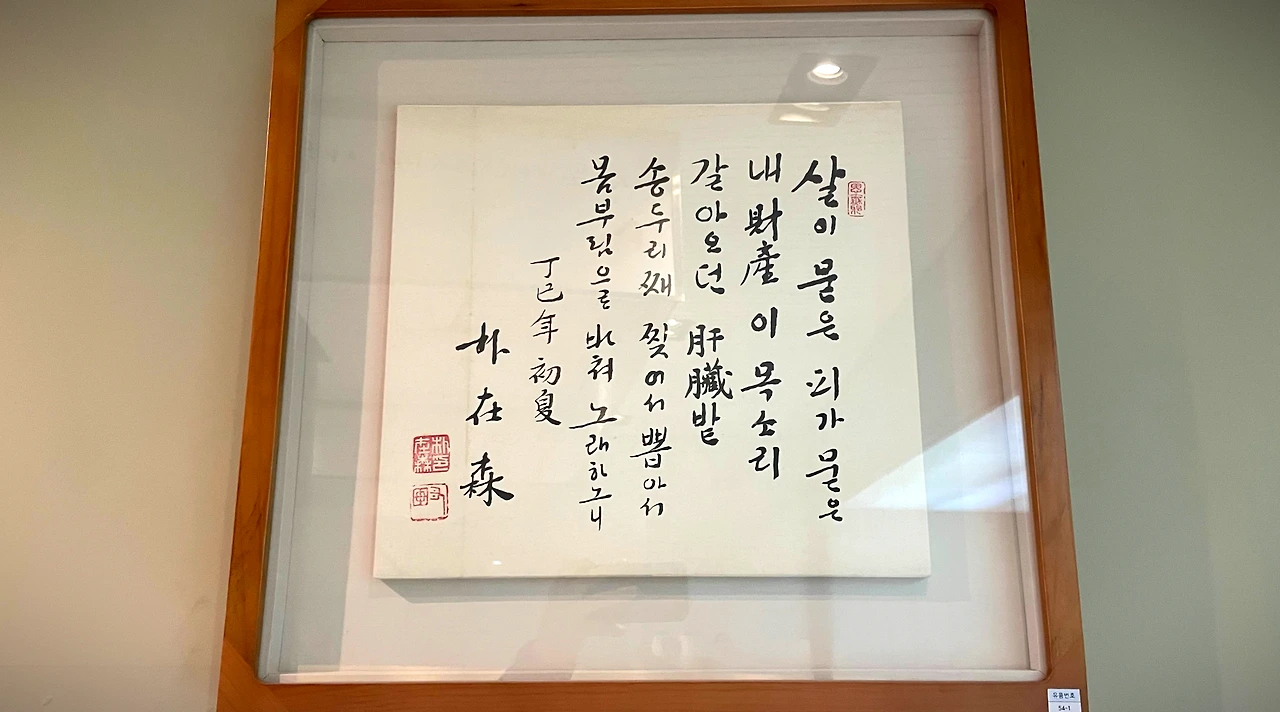 살이 묻은 피가 묻은
내 財産이 목소리
갈아오던 肝臟밭
송두리째 찢어서 뽑아서
몸부림으로 바쳐 노래하노니
丁巳年 初夏
朴在森
유품번호
54-1